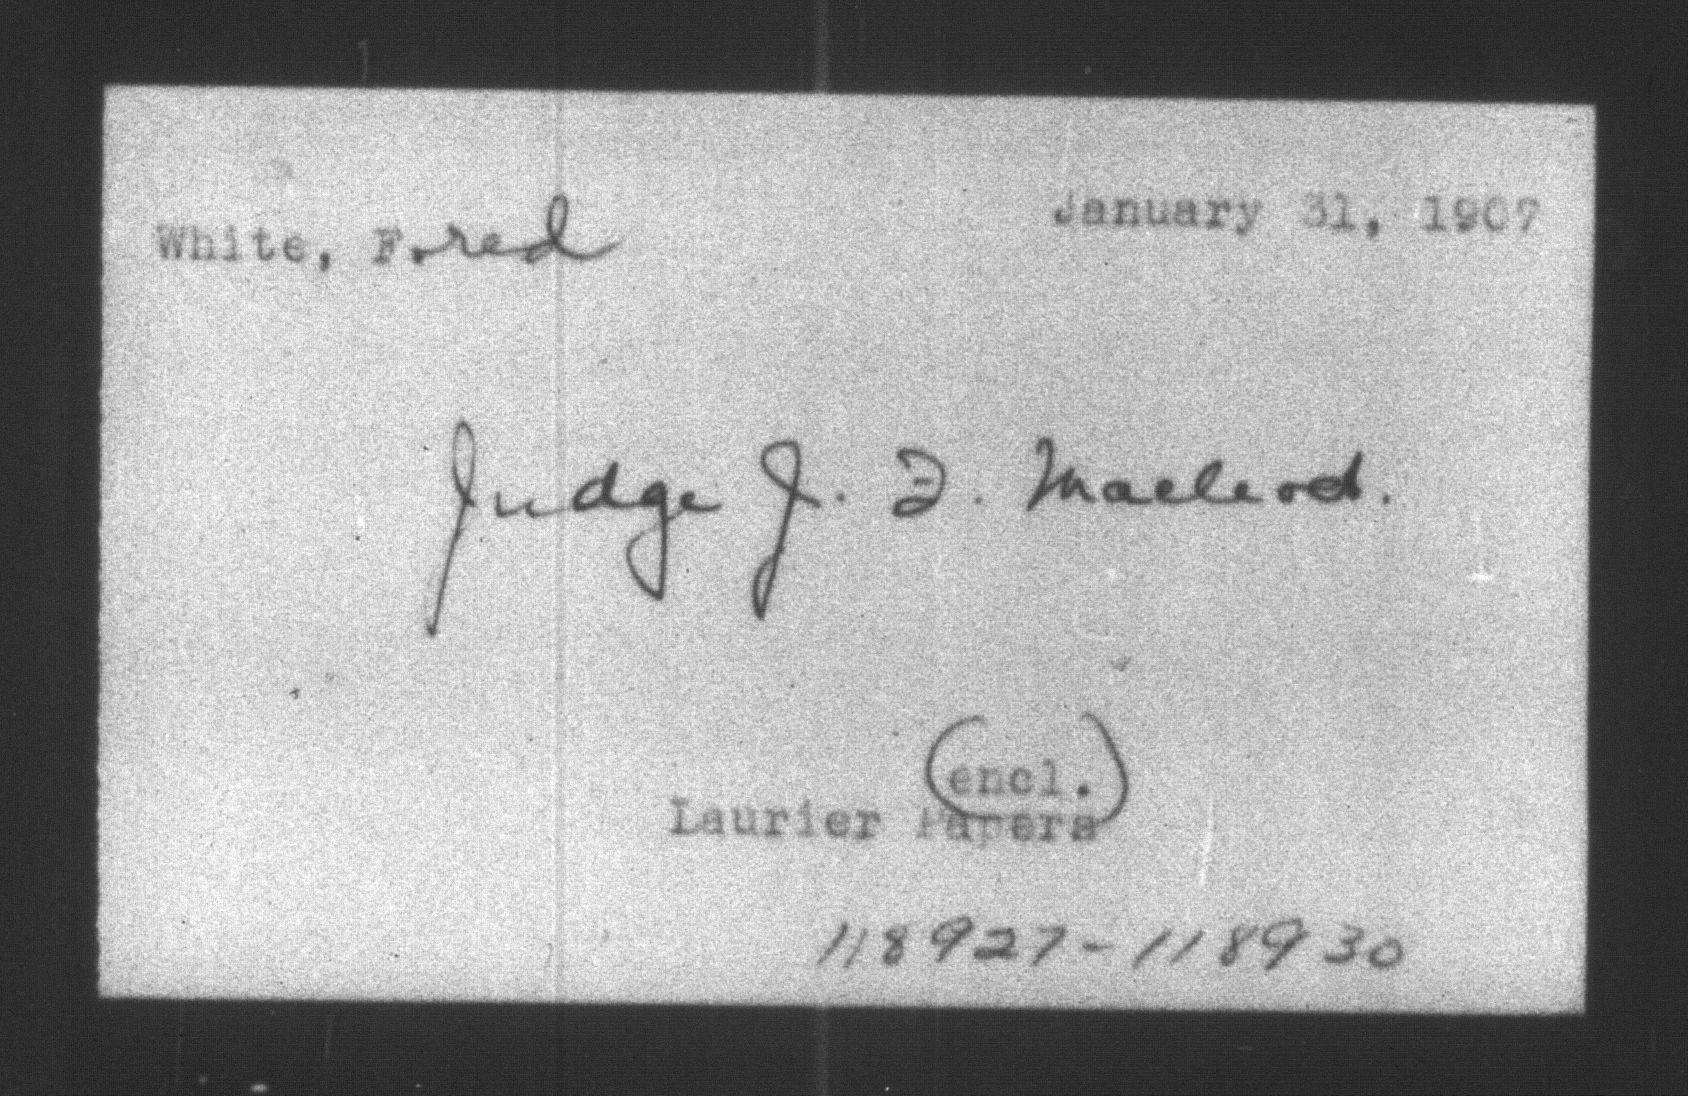 White, F.red
January 31, 1907
Judge J. F. Macleod.
(encl.)
Laurier Papers
118927-118930